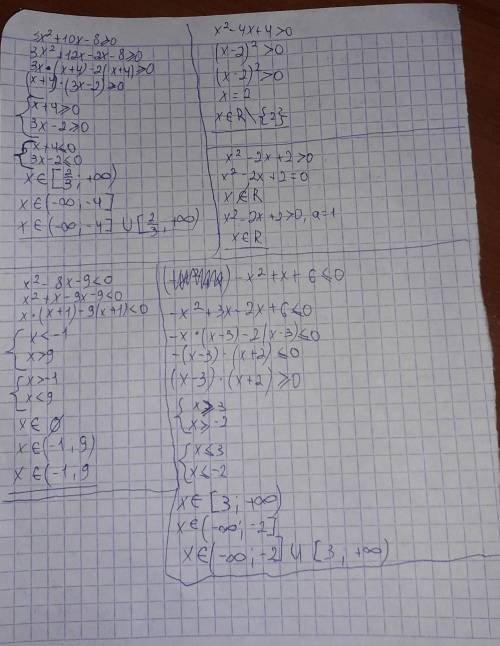 3x²+10x-8≥0
3x²+12x-2x-8≥0
3x•(x+4)-2(x+4)≥0
(x+4)•(3x-2)≥0
{x+4≥0
3x-2≥0
{x+4≤0
3x-2≤0
x∈[2/3;+∞)
x∈(-∞;-4]
x∈(-∞;-4]∪[2/3,+∞)
x²-4x+4>0
(x-2)²>0
(x-2)²>0
x=2
x∈R\{2}
x²-2x+2>0
x²-2x+2=0
x∉R
x²-2x+2>0, a=1
x∈R
x²-8x-9<0
x²+x-9x-9<0
x•(x+1)-9(x+1)<0
{x<-1
x>9
{x>-1
x<9
x∈Ø
x∈(-1,9)
x∈(-1,9
-x²+x+6≤0
-x²+3x-2x+6≤0
-x•(x-3)-2(x-3)≤0
-(x-3)•(x+2)≤0
(x-3)•(x+2)≥0
{x≥3
x≥-2
{x≤3
x≤-2
x∈[3;+∞)
x∈(-∞;-2]
x∈(-∞;-2]∪[3;+∞)